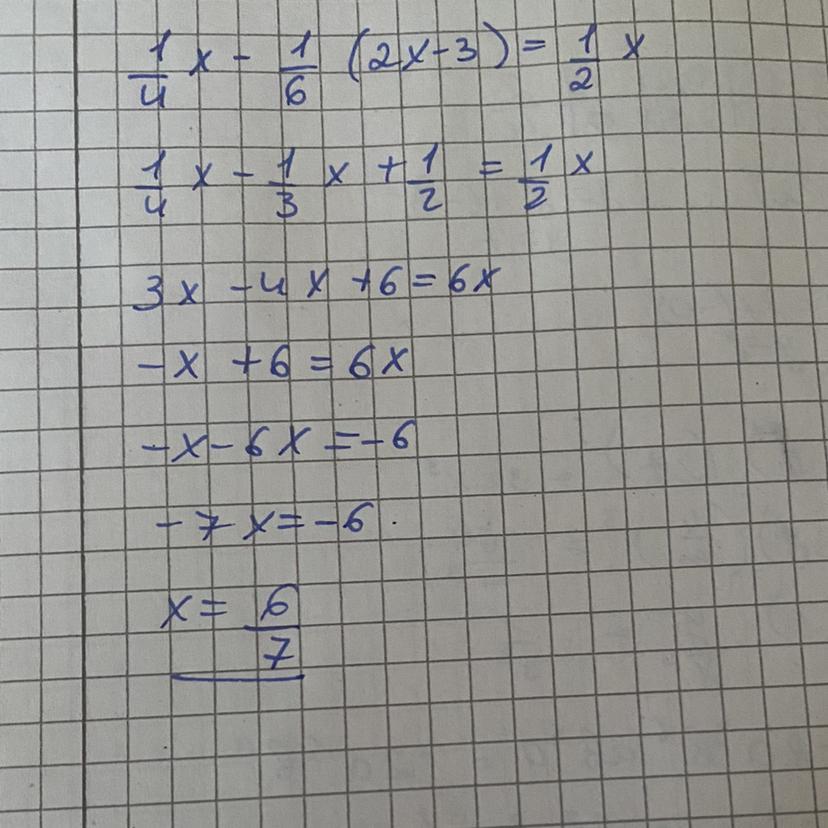 1/4 x - 1/6 (2x-3) = 1/2 x
1/4 x - 1/3 x + 1/2 = 1/2 x
3x - 4x + 6 = 6x
-x + 6 = 6x
-x - 6x = -6
-7x = -6.
x = 6/7